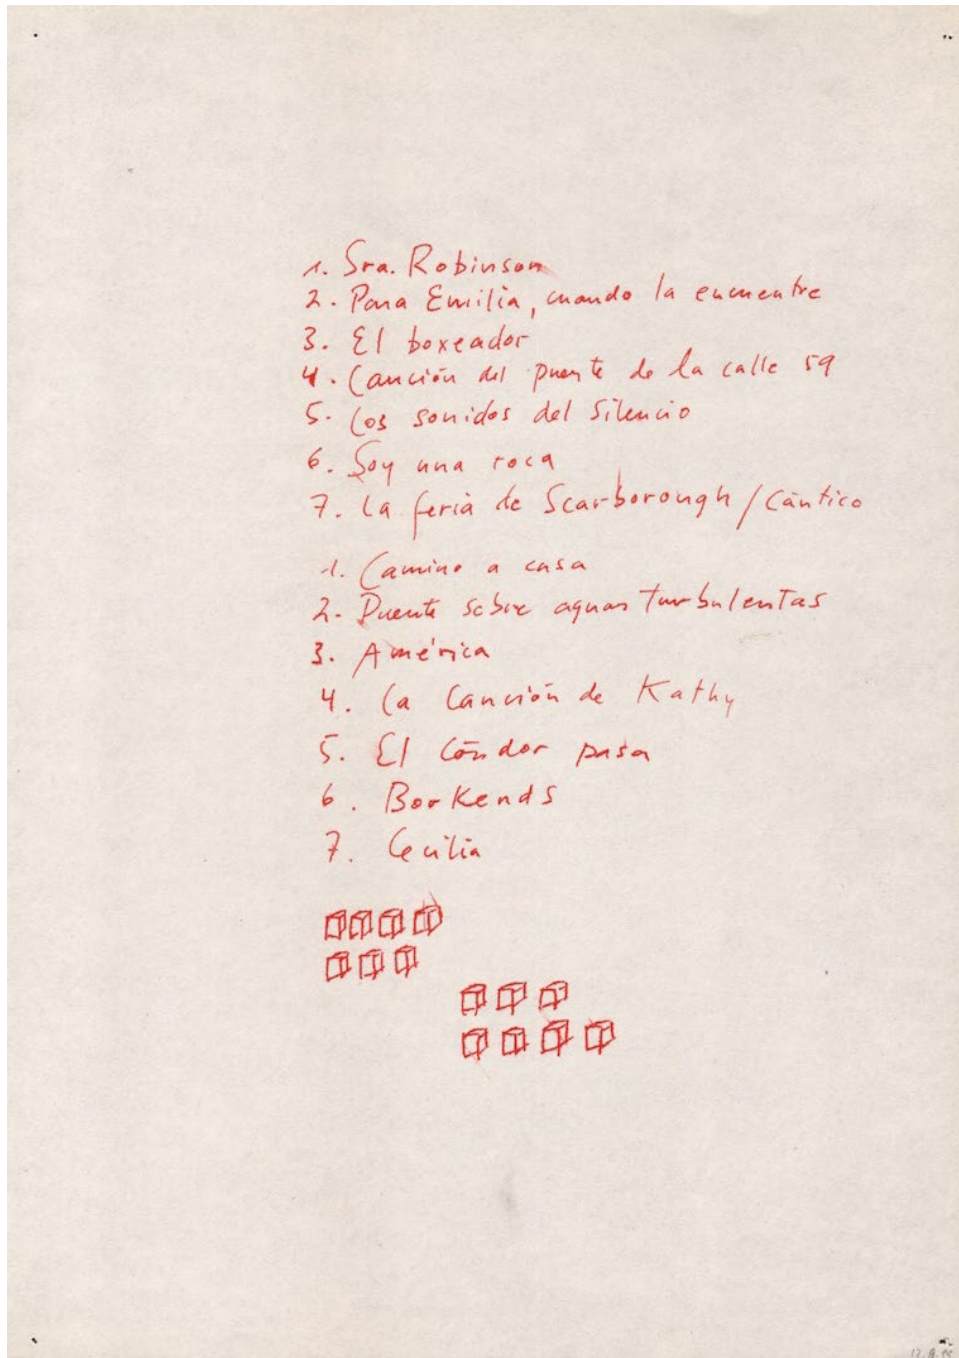 1. Sra. Robinson
2. Para Emilia, cuando la encuentre
3. El boxeador
4. Canción del puente de la calle 59
5. Los sonidos del silencio
6. Soy una roca
7. La feria de Scarborough / Cántico
1. Camino a casa
2. Puente sobre aguas turbulentas
3. América
4. La Canción de Kathy
5. El Cóndor pasa
6. Bookends
7. Cecilia